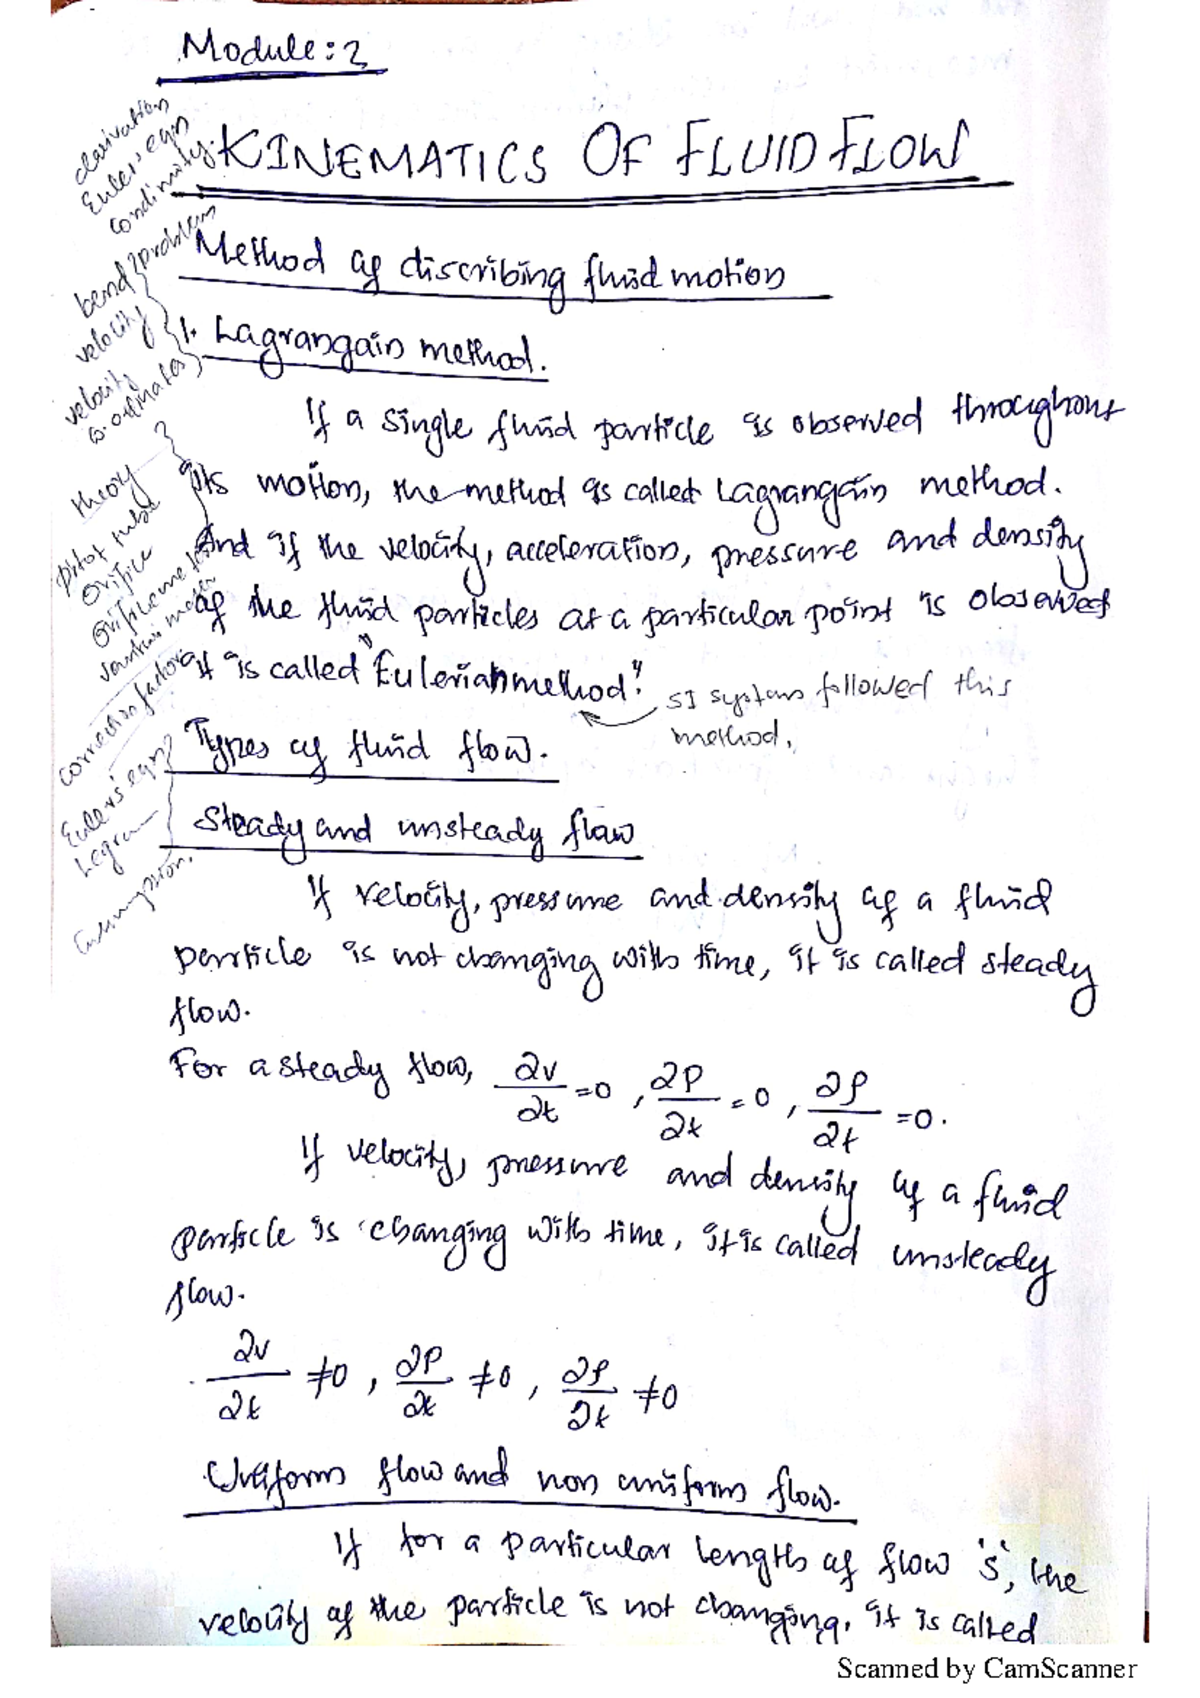 Module: 2
KINEMATICS OF FLUID FLOW
Method of discribing fluid motion
1. Lagrangain method.
If a single fluid particle is observed throughout
its motion, the method is called Lagrangain method.
And if the velocity, acceleration, pressure and density
of the fluid particles at a particular point is observed
it is called "Eulerian method".
SI system followed this
method.
Types of fluid flow.
Steady and unsteady flow
If velocity, pressure and density of a fluid
particle is not changing with time, it is called steady
flow.
For a steady flow, ∂v/∂t =0, ∂P/∂t =0, ∂ρ/∂t =0.
If velocity, pressure and density of a fluid
particle is changing with time, it is called unsteady
flow.
∂v/∂t ≠0, ∂P/∂t ≠0, ∂ρ/∂t ≠0
Uniform flow and non uniform flow.
If for a particular length of flow 's', the
velocity of the particle is not changing. it is called
derivation
Euler's eqn
continuity.
bend } problem
velocity
velocity
co. ordinates
theory
pitot tube
Orifice
Orificemeter
venturimeter
correction factor
Euler's eqn
Legran
Scanned by CamScanner